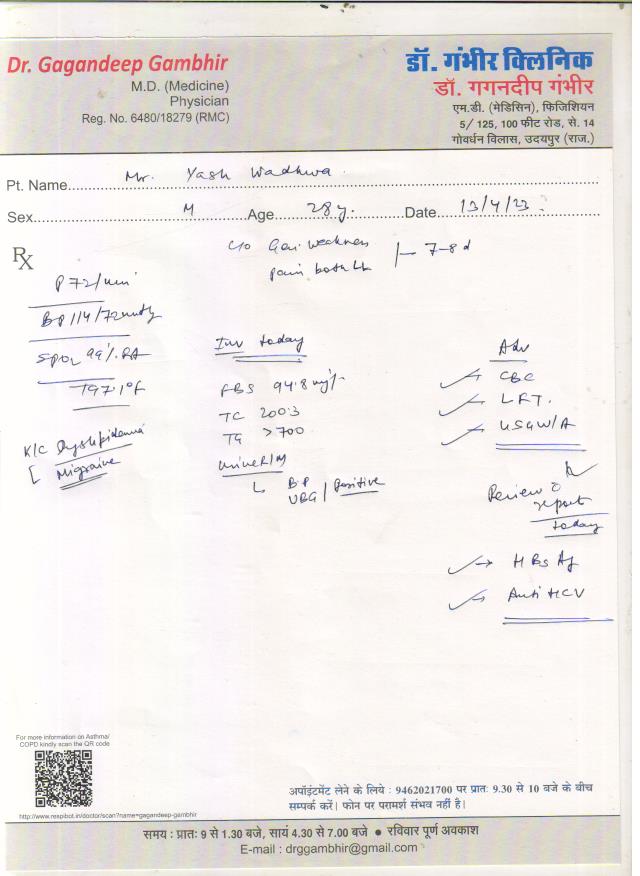 Dr. Gagandeep Gambhir
M.D. (Medicine)
Physician
Reg. No. 6480/18279 (RMC)
डॉ. गंभीर क्लिनिक
डॉ. गगनदीप गंभीर
एम.डी. (मेडिसिन), फिजिशियन
5/ 125, 100 फीट रोड, से. 14
गोवर्धन विलास, उदयपुर (राज.)
Pt. Name Mr. Yash Wadhwa
Sex M Age 28 y. Date 13/4/23
Rx
c/o Gen weakness
pain both LL
7-8 d
P 72/min
BP 114/72 mmHg
SPO2 99% RA
T 97.1°F
K/C Dyslipidemia
Migraine
Inv today
FBS 94.8 mg%
TC 200.3
TG >700
Urine R/M
BP
UBG / Positive
Adv
CBC
LFT.
USG W/A
Review c̄
report
today
HBsAg
Anti HCV
For more information on Asthma/
COPD kindly scan the QR code
http://www.respibot.in/doctor/scan?name=gagandeep-gambhir
अपॉइंटमेंट लेने के लिये : 9462021700 पर प्रातः 9.30 से 10 बजे के बीच
सम्पर्क करें। फोन पर परामर्श संभव नहीं है।
समय : प्रातः 9 से 1.30 बजे, सायं 4.30 से 7.00 बजे ● रविवार पूर्ण अवकाश
E-mail : drggambhir@gmail.com